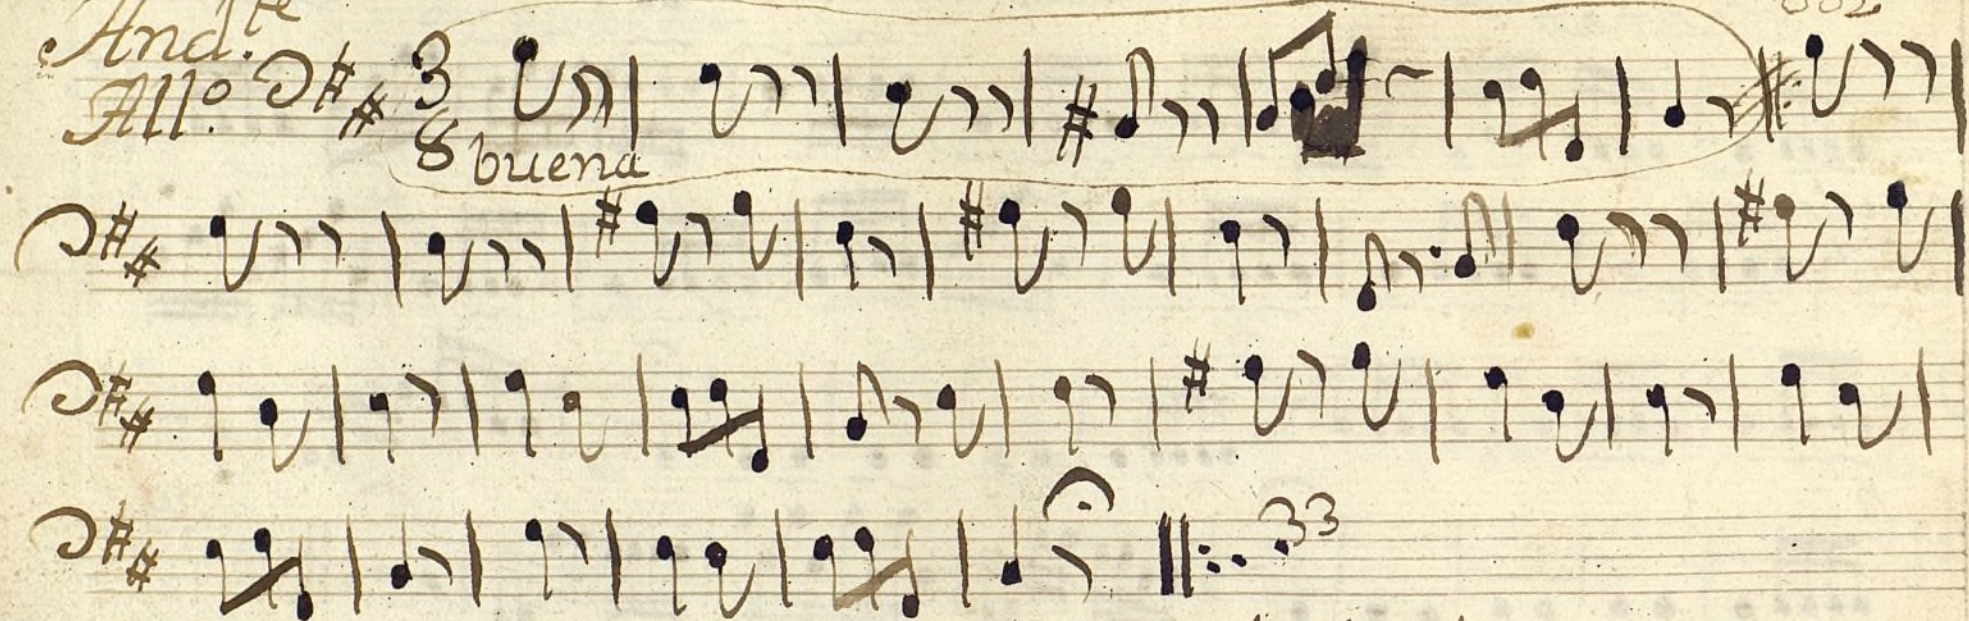 And.te
All.o
3
8 buena
33